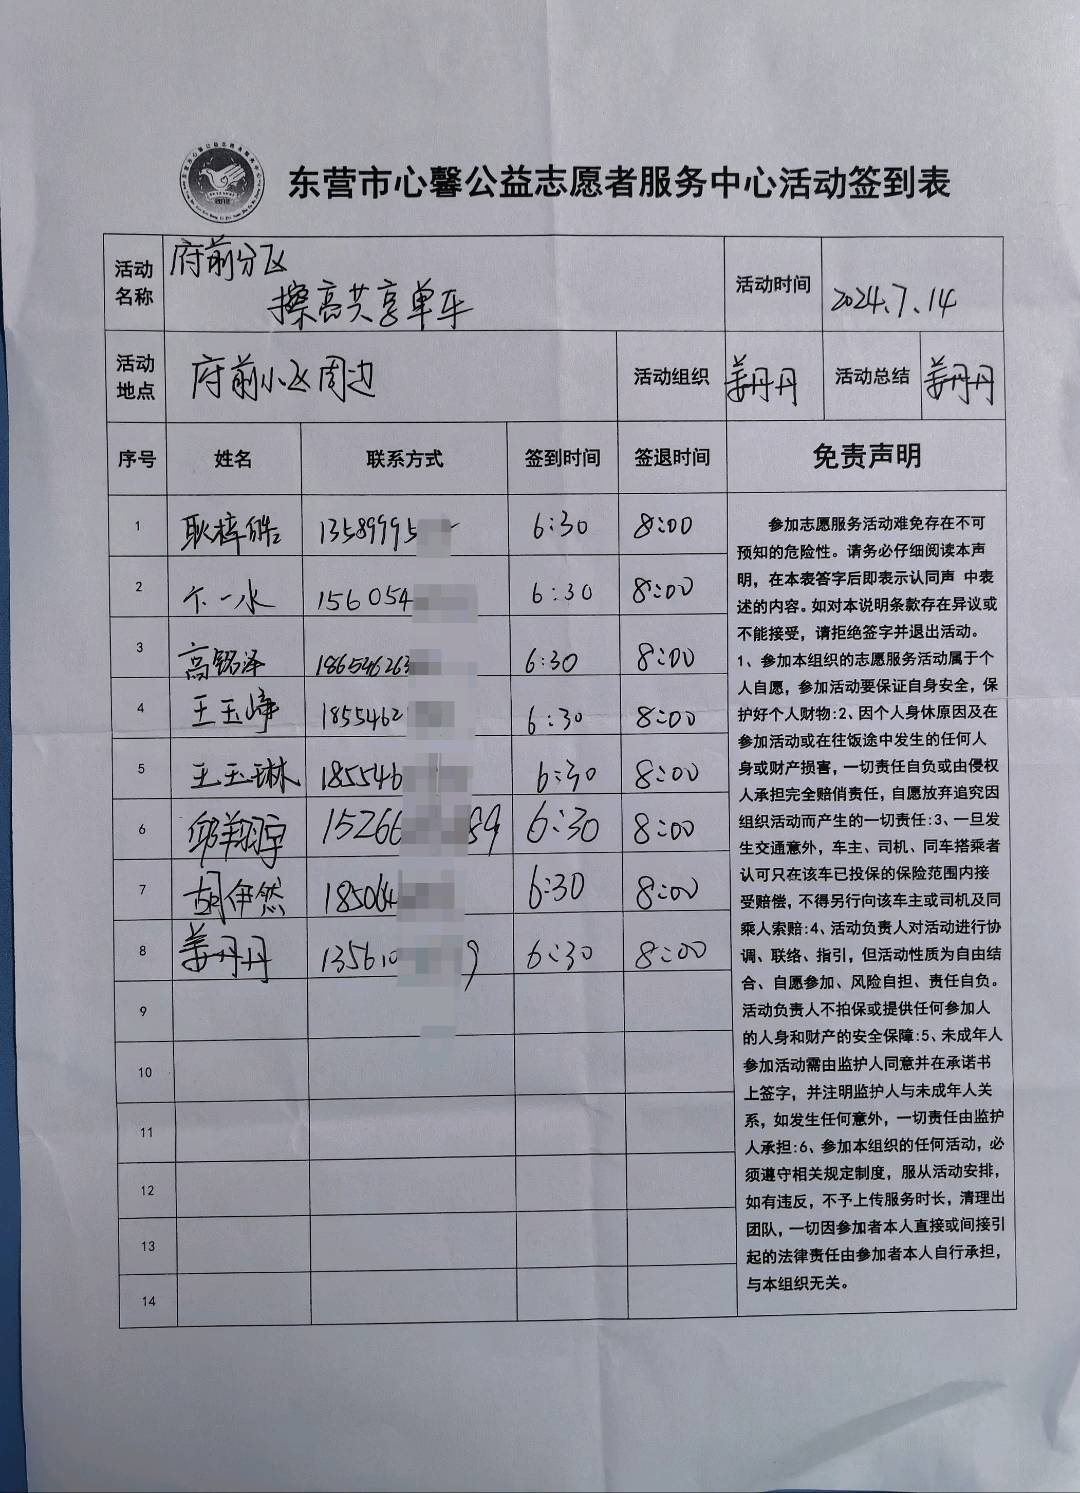 东营市心馨公益志愿者服务中心活动签到表
活动名称
府前分区
擦高共享单车
活动时间
2024.7.14
活动地点
府前小区周边
活动组织
姜丹丹
活动总结
姜丹丹
序号 姓名 联系方式 签到时间 签退时间 免责声明
1 耿梓皓 13589995 6:30 8:00
2 一水 156054 6:30 8:00
3 高铭泽 186546263 6:30 8:00
4 王玉峥 1855462 6:30 8:00
5 王玉琳 185546 6:30 8:00
6 邱翔宇 15266 89 6:30 8:00
7 胡伊然 185064 6:30 8:00
8 姜丹丹 135610 9 6:30 8:00
9
10
11
12
13
14
参加志愿服务活动难免存在不可
预知的危险性。请务必仔细阅读本声
明，在本表答字后即表示认同声 中表
述的内容。如对本说明条款存在异议或
不能接受，请拒绝签字并退出活动。
1、参加本组织的志愿服务活动属于个
人自愿，参加活动要保证自身安全，保
护好个人财物:2、因个人身休原因及在
参加活动或在往饭途中发生的任何人
身或财产损害，一切责任自负或由侵权
人承担完全赔俏责任，自愿放弃追究因
组织活动而产生的一切责任:3、一旦发
生交通意外，车主、司机、同车搭乘者
认可只在该车已投保的保险范围内接
受赔偿，不得另行向该车主或司机及同
乘人索赔:4、活动负责人对活动进行协
调、联络、指引，但活动性质为自由结
合、自愿参加、风险自担、责任自负。
活动负责人不拍保或提供任何参加人
的人身和财产的安全保障:5、未成年人
参加活动需由监护人同意并在承诺书
上签字，并注明监护人与未成年人关
系，如发生任何意外，一切责任由监护
人承担:6、参加本组织的任何活动，必
须遵守相关规定制度，服从活动安排，
如有违反，不予上传服务时长，清理出
团队，一切因参加者本人直接或间接引
起的法律责任由参加者本人自行承担，
与本组织无关。